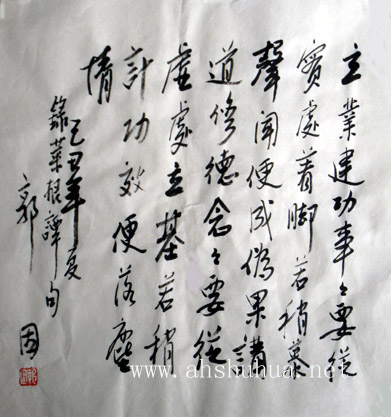 立業建功事々要從
實處着脚若稍慕
聲聞便成僞果講
道修德念々要從
虛處立基若稍
計功效便落塵
情
己丑年夏
錄菜根譚句
郭因
www.ahshuhua.net